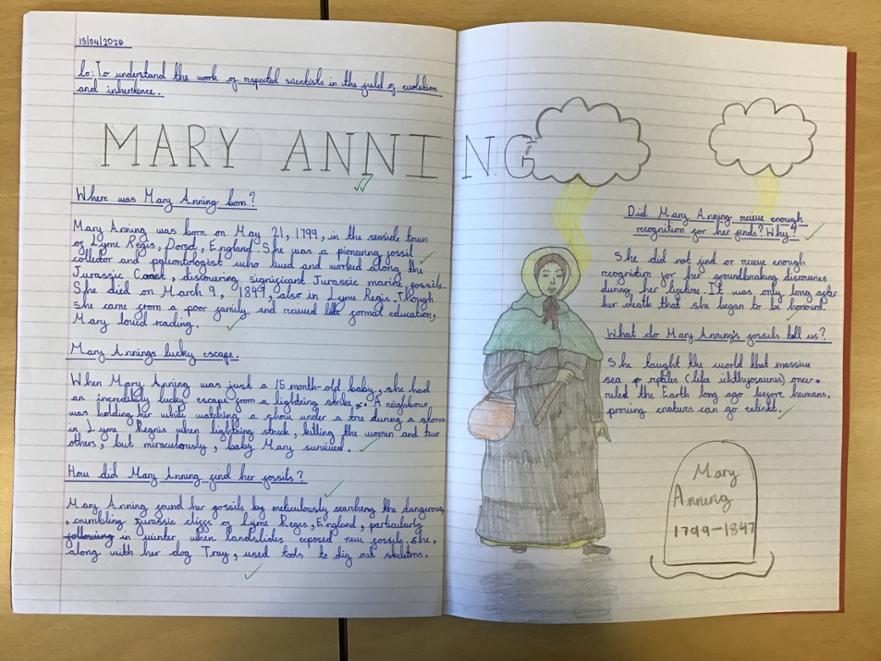 15/04/2026
Lo: To understand the work of respected scientists in the field of evolution
and inheritence.
MARY ANNING
Where was Mary Anning born?
Mary Anning was born on May 21, 1799, in the seaside town
of Lyme Regis, Dorset, England. She was a pioneering fossil
collector and palaeontologist who lived and worked along the
Jurassic Coast, discovering significant Jurassic marine fossils.
She died on March 9, 1847, also in Lyme Regis. Though
she came from a poor family and recieved little formal education,
Mary loved reading.
Mary Annings lucky escape.
When Mary Anning was just a 15 month-old baby, she had
an incredibly lucky escape from a lightning strike. A neighbour
was holding her while watching a show under a tree during a storm
in Lyme Regis when lightning struck, killing the women and two
others, but miraculously, baby Mary survived.
How did Mary Anning find her fossils?
Mary Anning found her fossils by meticulously searching the dangerous
, crumbling Jurassic cliffs of Lyme Regis, England, particularly
following in winter when landslides exposed new fossils. She,
along with her dog Tray, used tools to dig out skeletons.
Did Mary Anning recieve enough
recognition for her finds? Why?
She did not find or recieve enough
recognition for her groundbreaking discoveries
during her lifetime. It was only long after
her death that she began to be honoured.
What do Mary Anning's fossils tell us?
She taught the world that massive
sea reptiles (like ichthyosaurus) once
ruled the Earth long ago before humans,
proving creatures can go extinct.
Mary
Anning
1799-1847